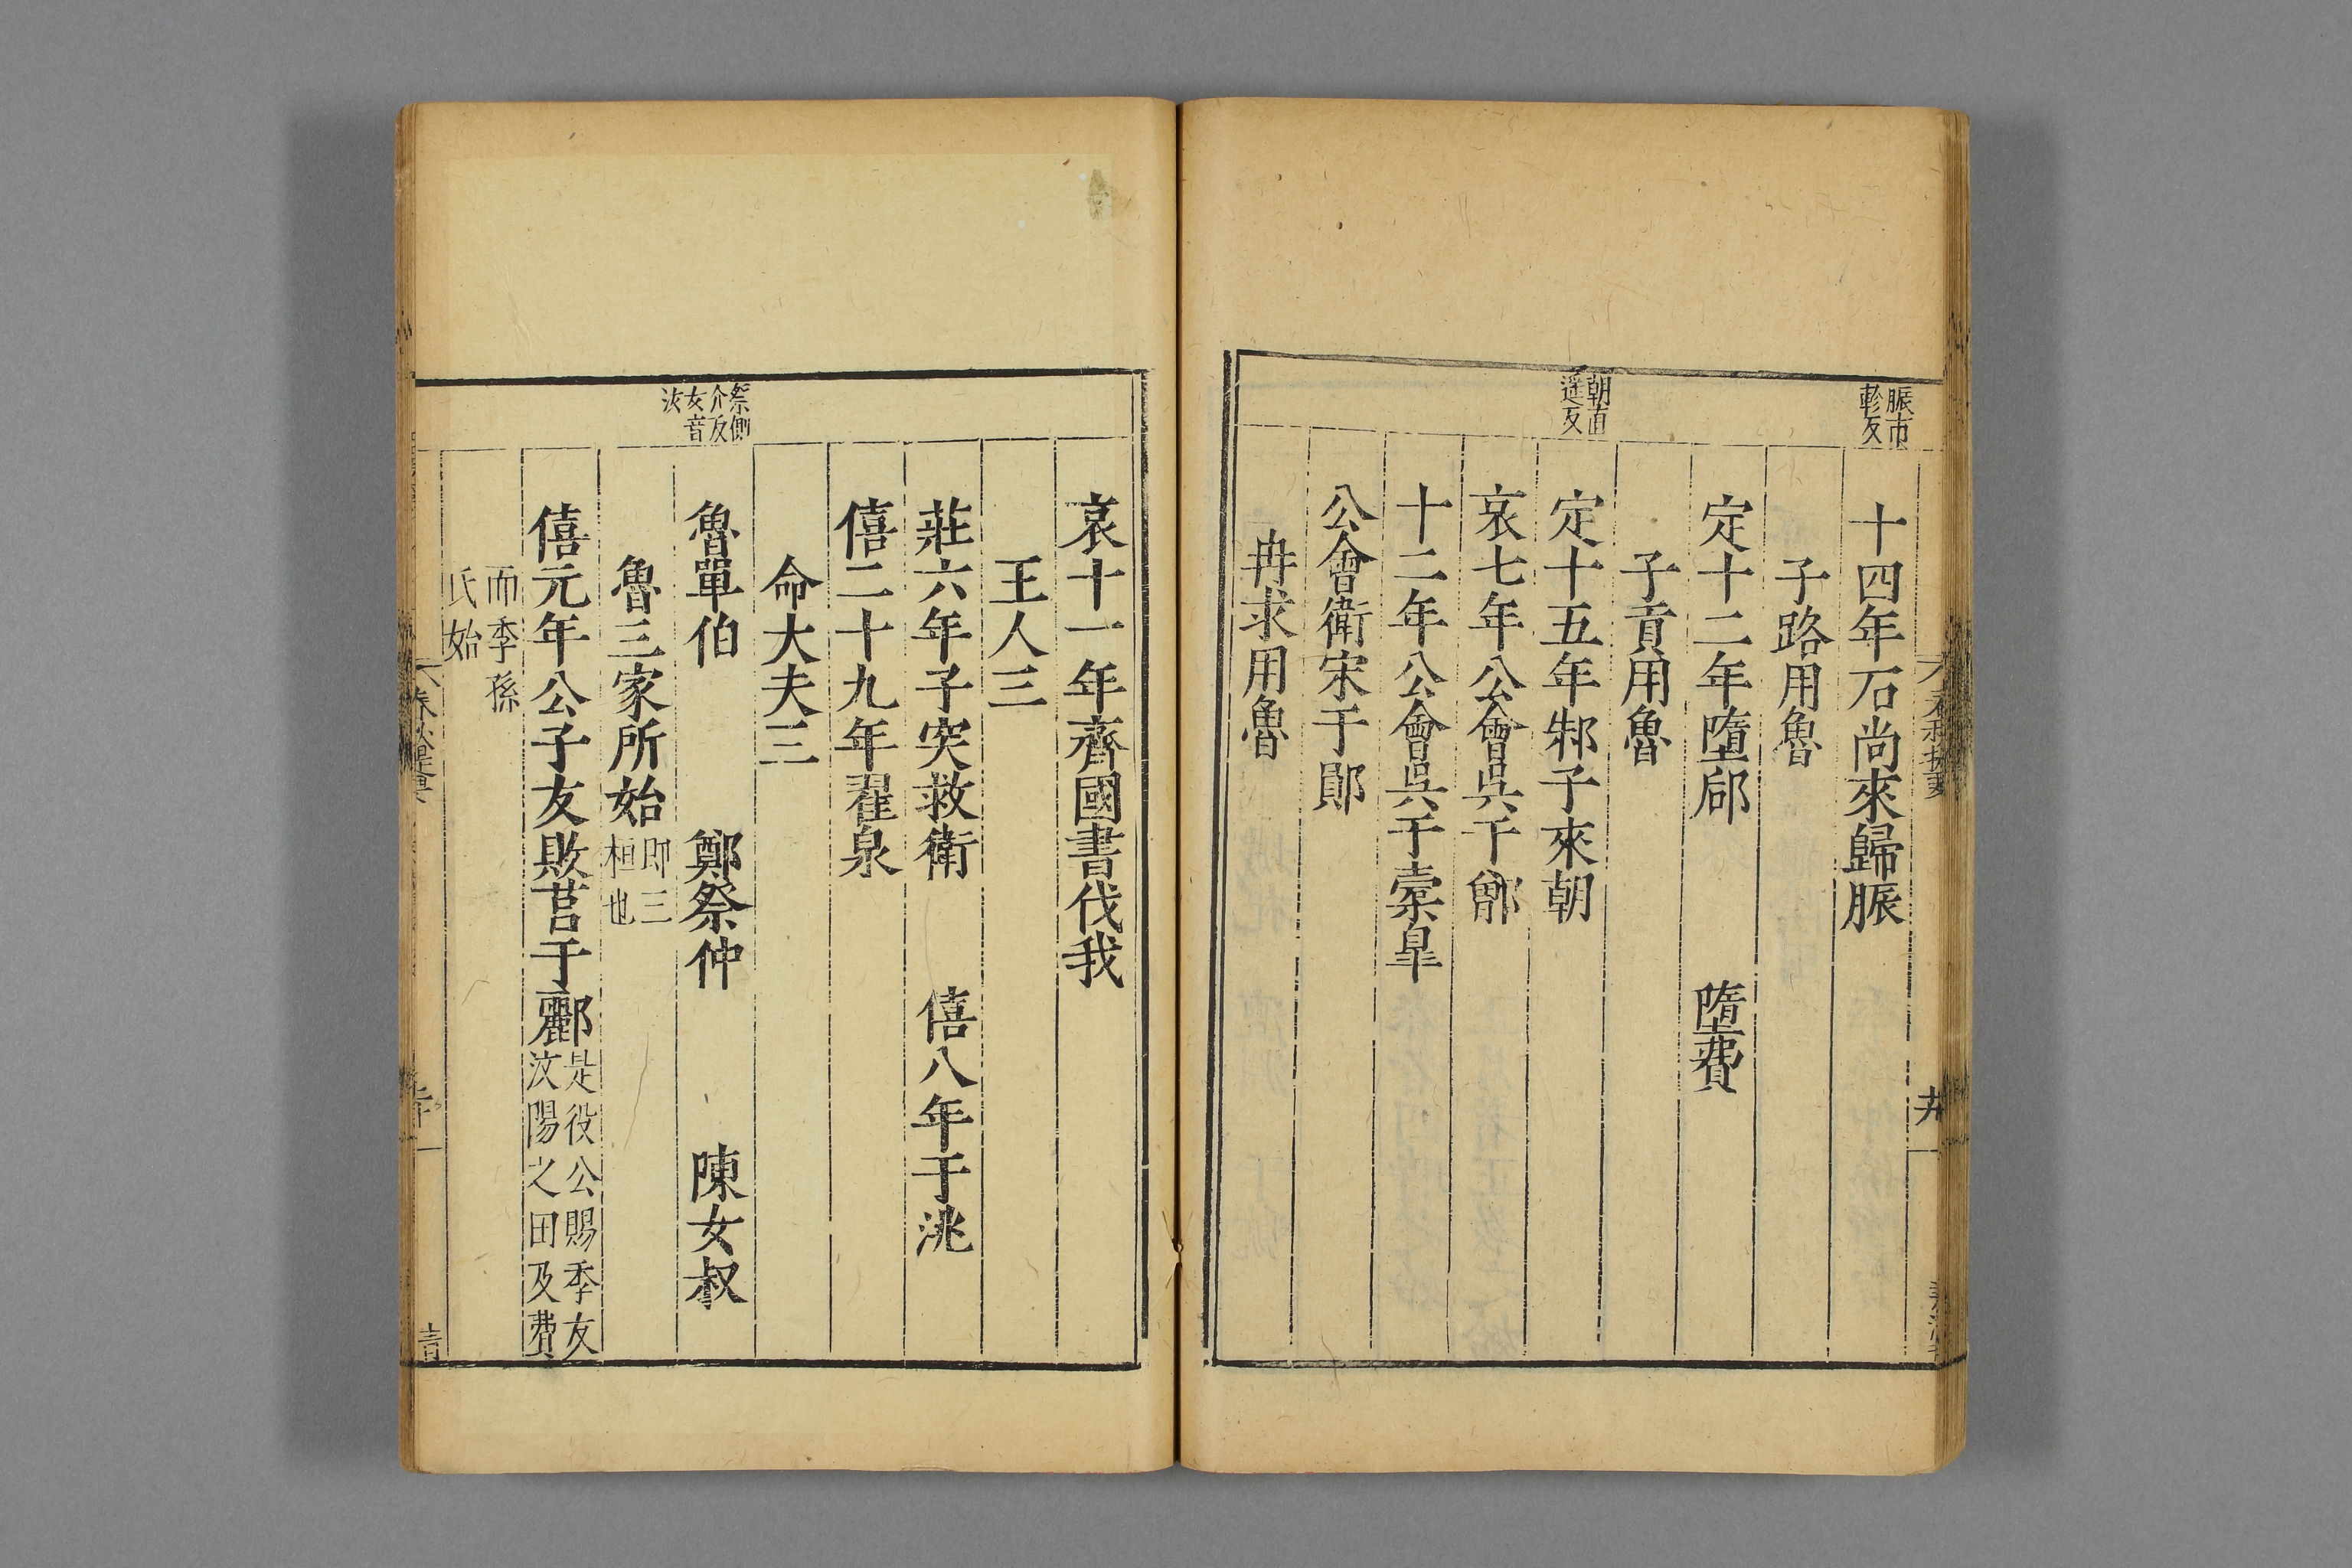 脤市
軫反
十四年石尚來歸脤
子路用魯
定十二年墮郈 墮費
子貢用魯
朝直
遥反
定十五年邾子來朝
哀七年公會吳于鄫
十二年公會吳于橐皐
公會衛宋于鄖
冉求用魯
哀十一年齊國書伐我
王人三
莊六年子突救衛 僖八年于洮
僖二十九年翟泉
命大夫三
祭側
介反
女音
汝
魯單伯 鄭祭仲 陳女叔
魯三家所始即三
桓也
僖元年公子友敗莒于酈是役公賜季友
汶陽之田及費
而季孫
氏始